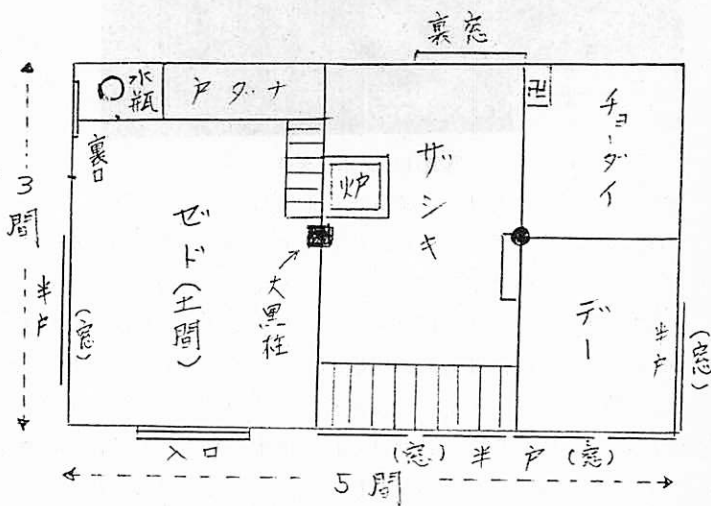 裏窓
水瓶
戸ダナ
卍
チョーダイ
裏口
炉
ザシキ
3間
ゼド(土間)
大黒柱
半戸
(窓)
デー
半戸
(窓)
入口
(窓) 半戸 (窓)
5間